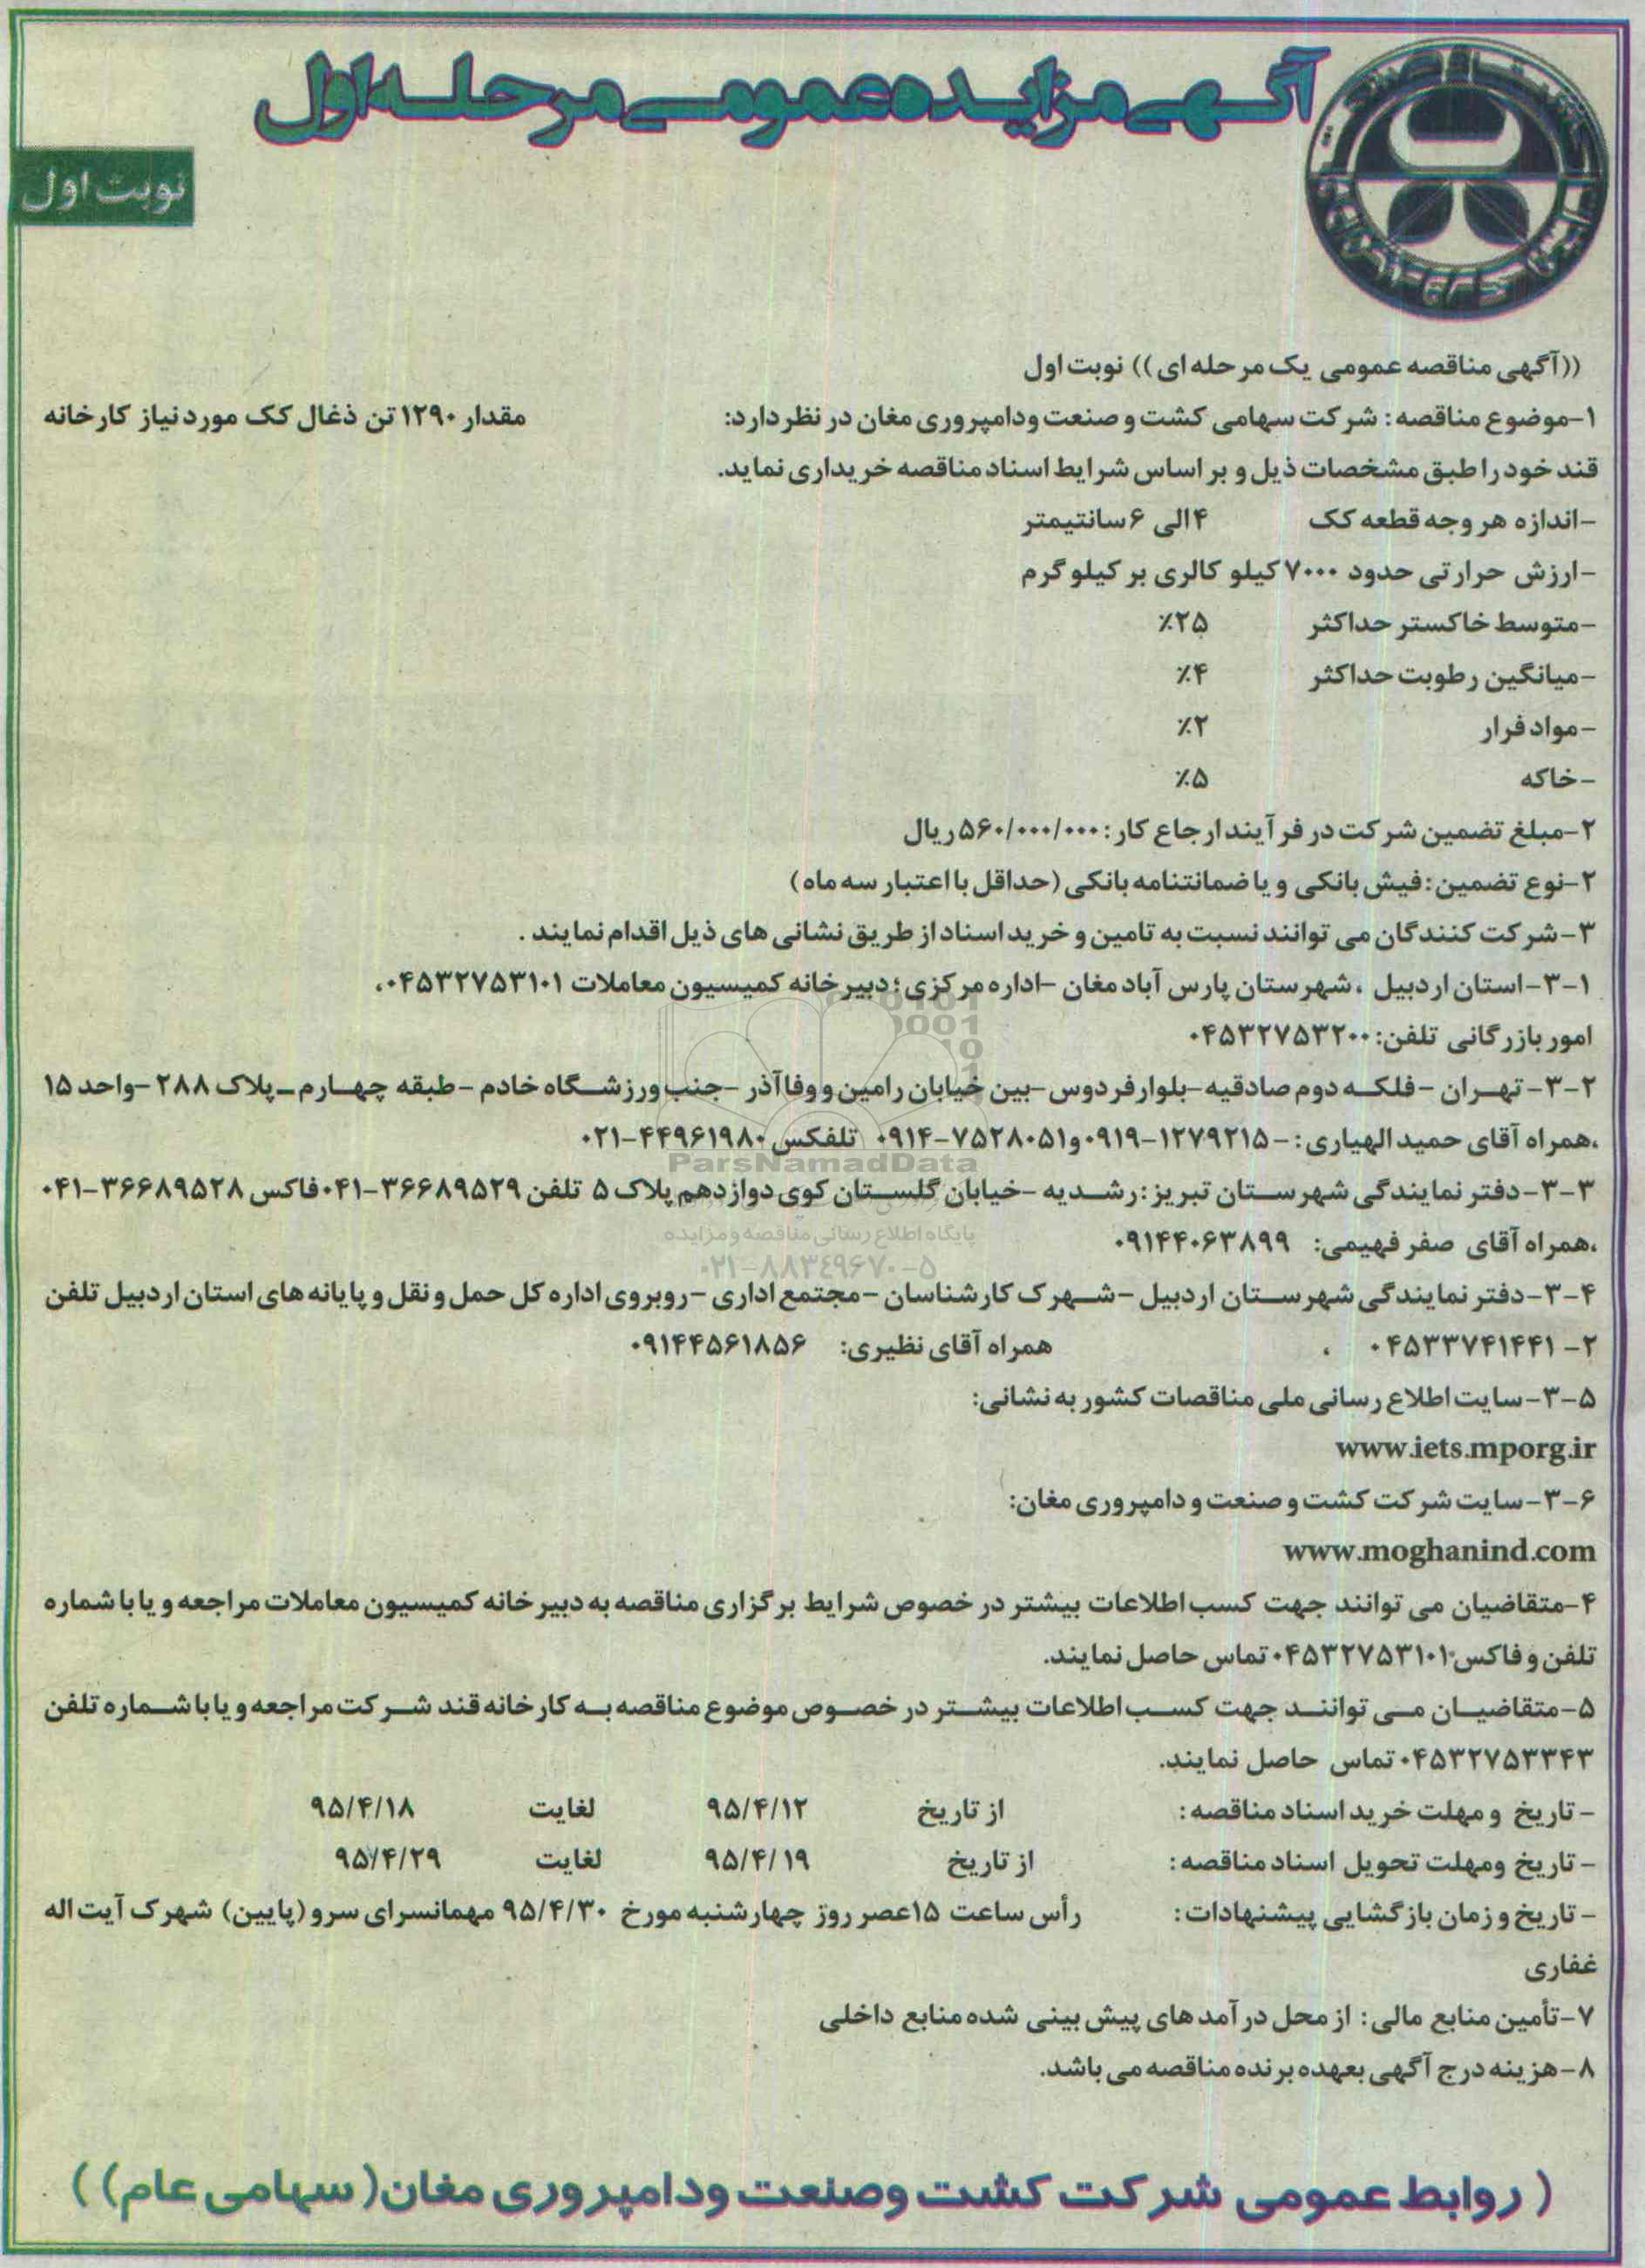 آگهی مزایده عمومی مرحله اول
نوبت اول
((آگهی مناقصه عمومی یک مرحله ای)) نوبت اول
۱-موضوع مناقصه: شرکت سهامی کشت و صنعت ودامپروری مغان در نظر دارد: مقدار ۱۲۹۰ تن ذغال کک مورد نیاز کارخانه
قند خود را طبق مشخصات ذیل و بر اساس شرایط اسناد مناقصه خریداری نماید.
-اندازه هر وجه قطعه کک ۴الی ۶ سانتیمتر
-ارزش حرارتی حدود ۷۰۰۰ کیلو کالری بر کیلو گرم
-متوسط خاکستر حداکثر ۲۵٪
-میانگین رطوبت حداکثر ۴٪
-مواد فرار ۲٪
-خاکه ۵٪
۲-مبلغ تضمین شرکت در فرآیند ارجاع کار: ۵۶۰/۰۰۰/۰۰۰ ریال
۲-نوع تضمین: فیش بانکی و یا ضمانتنامه بانکی (حداقل با اعتبار سه ماه)
۳-شرکت کنندگان می توانند نسبت به تامین و خرید اسناد از طریق نشانی های ذیل اقدام نمایند .
۳-۱-استان اردبیل ، شهرستان پارس آباد مغان -اداره مرکزی؛ دبیرخانه کمیسیون معاملات ۰۴۵۳۲۷۵۳۱۰۱،
امور بازرگانی تلفن: ۰۴۵۳۲۷۵۳۲۰۰
۳-۲-تهران -فلکه دوم صادقیه -بلوار فردوس -بین خیابان رامین و وفا آذر -جنب ورزشگاه خادم -طبقه چهارم -پلاک ۲۸۸ -واحد ۱۵
،همراه آقای حمید الهیاری: -۰۹۱۹-۱۲۷۹۲۱۵ و ۰۹۱۴-۷۵۲۸۰۵۱ تلفکس ۰۲۱-۴۴۹۶۱۹۸۰
۳-۳-دفتر نمایندگی شهرستان تبریز: رشدیه -خیابان گلستان کوی دوازدهم پلاک ۵ تلفن ۰۴۱-۳۶۶۸۹۵۲۹ فاکس ۰۴۱-۳۶۶۸۹۵۲۸
،همراه آقای صفر فهیمی: ۰۹۱۴۴۰۶۳۸۹۹
۳-۴-دفتر نمایندگی شهرستان اردبیل -شهرک کارشناسان -مجتمع اداری -روبروی اداره کل حمل و نقل و پایانه های استان اردبیل تلفن
۲-۰۴۵۳۳۷۴۱۴۴۱ ، همراه آقای نظیری: ۰۹۱۴۴۵۶۱۸۵۶
۳-۵-سایت اطلاع رسانی ملی مناقصات کشور به نشانی:
www.iets.mporg.ir
۳-۶-سایت شرکت کشت و صنعت و دامپروری مغان:
www.moghanind.com
۴-متقاضیان می توانند جهت کسب اطلاعات بیشتر در خصوص شرایط برگزاری مناقصه به دبیرخانه کمیسیون معاملات مراجعه و یا با شماره
تلفن و فاکس ۰۴۵۳۲۷۵۳۱۰۱ تماس حاصل نمایند.
۵-متقاضیان می توانند جهت کسب اطلاعات بیشتر در خصوص موضوع مناقصه به کارخانه قند شرکت مراجعه و یا با شماره تلفن
۰۴۵۳۲۷۵۳۳۴۳ تماس حاصل نمایند.
- تاریخ و مهلت خرید اسناد مناقصه: از تاریخ ۹۵/۴/۱۲ لغایت ۹۵/۴/۱۸
- تاریخ ومهلت تحویل اسناد مناقصه: از تاریخ ۹۵/۴/۱۹ لغایت ۹۵/۴/۲۹
- تاریخ و زمان بازگشایی پیشنهادات: رأس ساعت ۱۵عصر روز چهارشنبه مورخ ۹۵/۴/۳۰ مهمانسرای سرو (پایین) شهرک آیت اله
غفاری
۷-تأمین منابع مالی: از محل درآمد های پیش بینی شده منابع داخلی
۸-هزینه درج آگهی بعهده برنده مناقصه می باشد.
( روابط عمومی شرکت کشت وصنعت ودامپروری مغان( سهامی عام) )
ParsNamadData
پایگاه اطلاع رسانی مناقصه و مزایده
۰۲۱-۸۸۳۴۹۶۷۰-۵